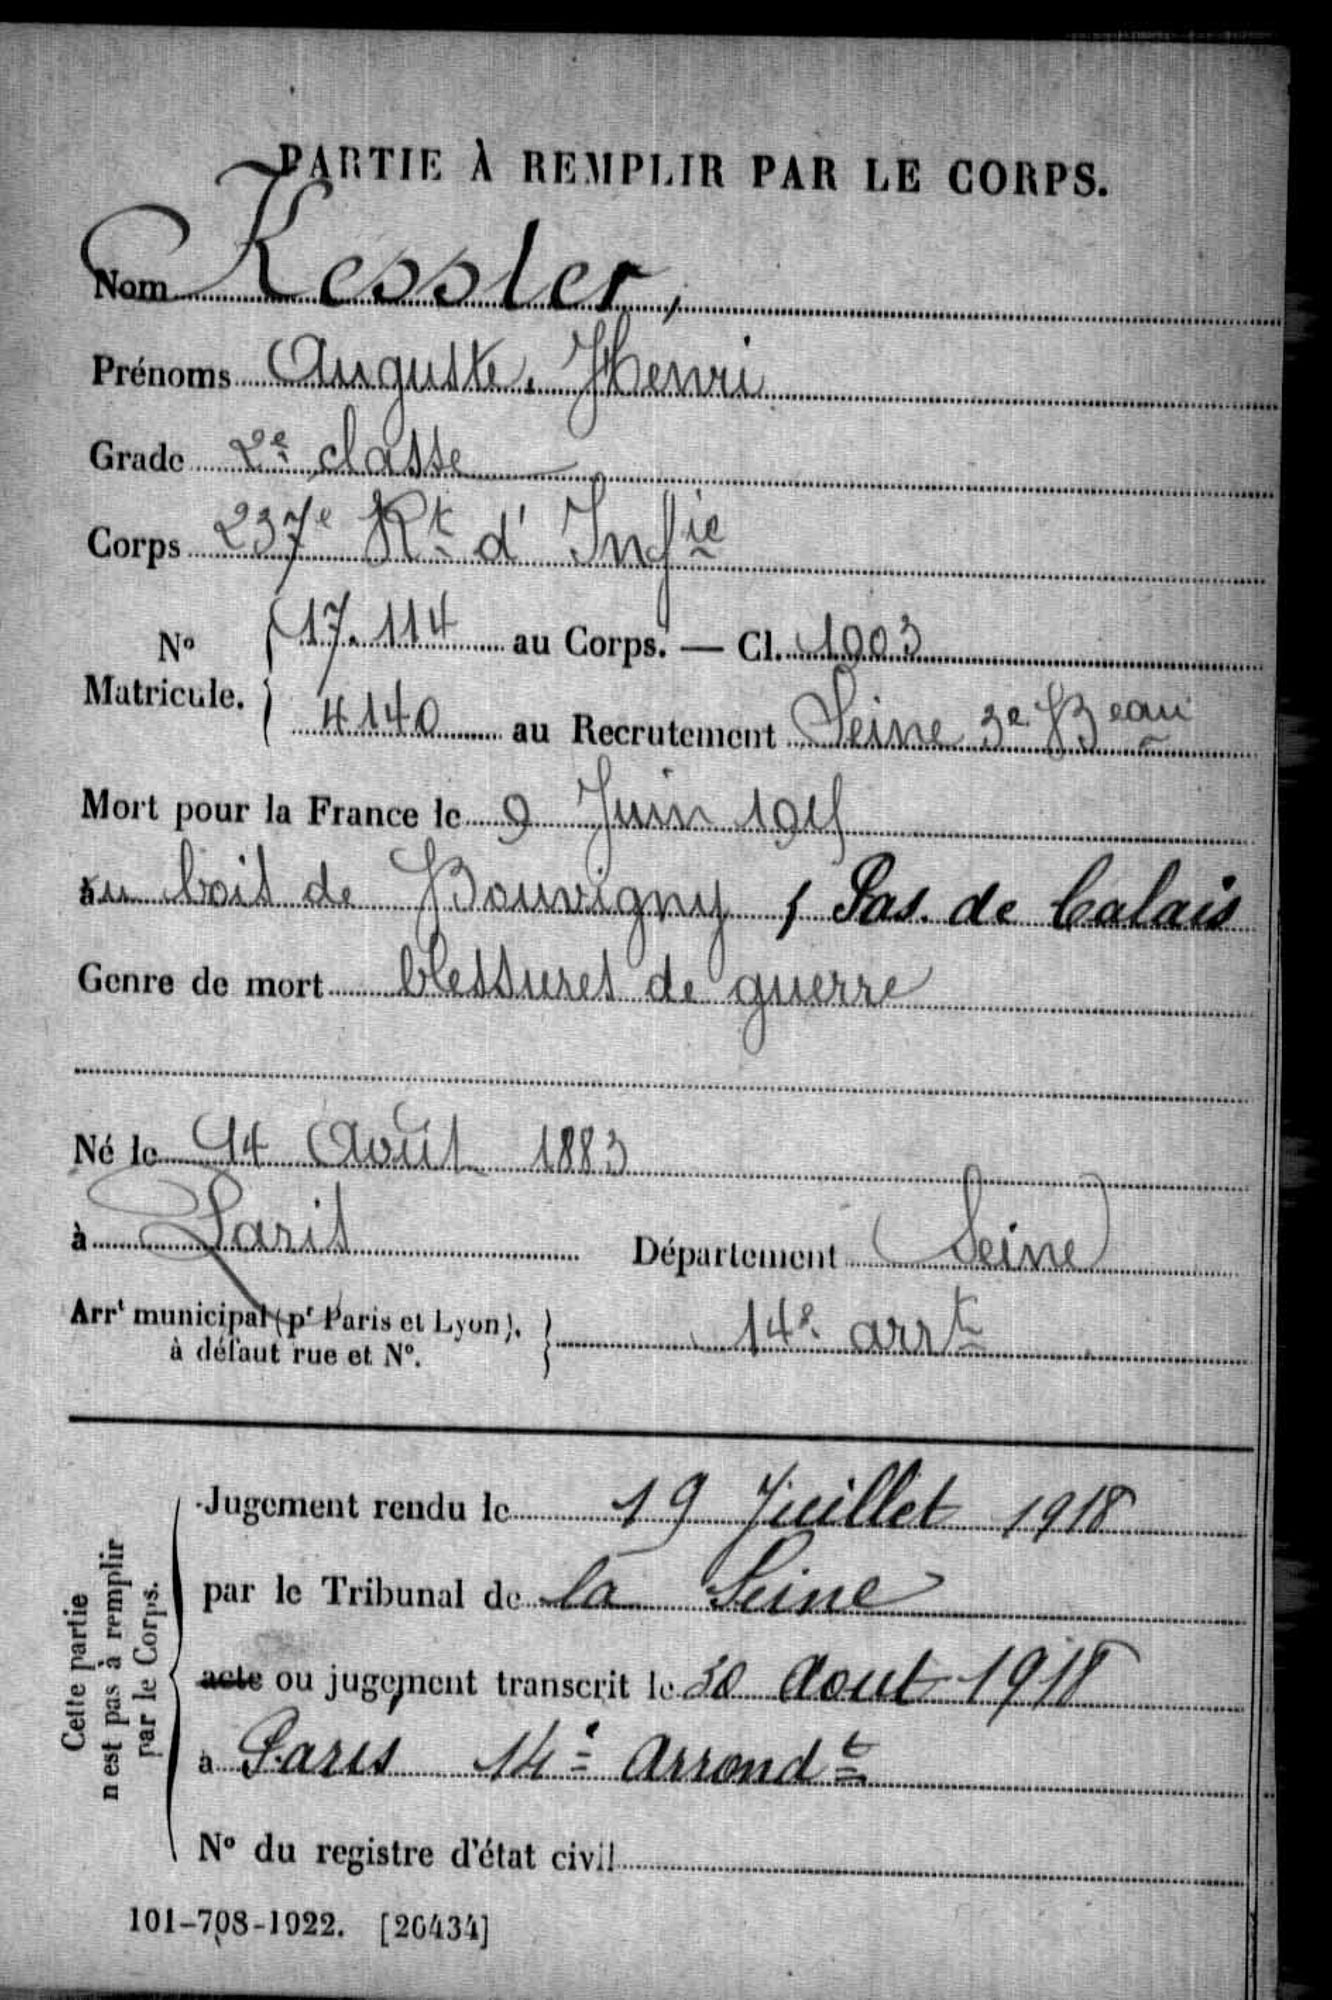 PARTIE À REMPLIR PAR LE CORPS.
Nom Kessler,
Prénoms Auguste, Henri
Grade 2e classe
Corps 237e Rt d'Infie
No Matricule. { 17.114 au Corps. — Cl. 1903
4140 au Recrutement Seine 3e Beau
Mort pour la France le 9 Juin 1915
au bois de Bouvigny, Pas de Calais
Genre de mort blessures de guerre
Né le 14 Août 1883
à Paris Département Seine
Arrt municipal (pr Paris et Lyon), à défaut rue et No. } 14e arrt
Cette partie n'est pas à remplir par le Corps.
Jugement rendu le 19 Juillet 1918
par le Tribunal de la Seine
acte ou jugement transcrit le 30 Aout 1918
à Paris 14e Arrondt
No du registre d'état civil
101-708-1922. [26434]